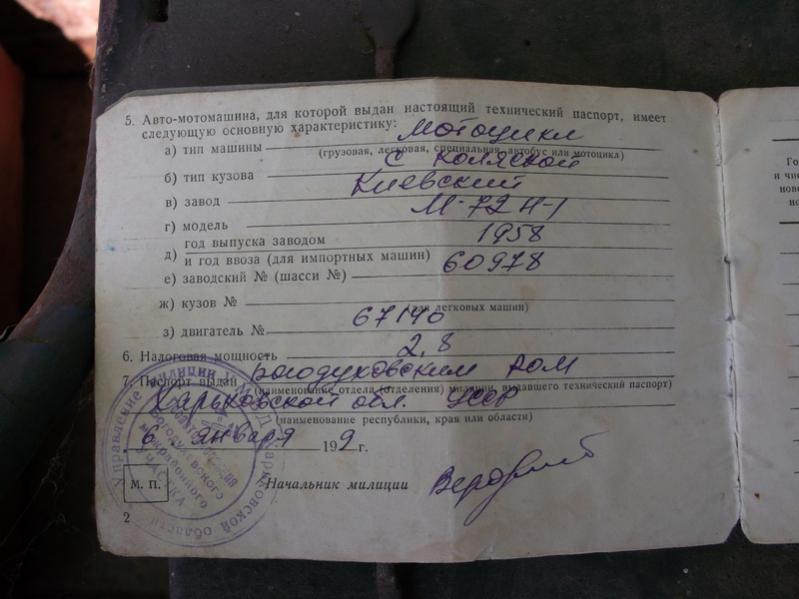 5. Авто-мотомашина, для которой выдан настоящий технический паспорт, имеет
следующую основную характеристику:
а) тип машины Мотоцикл
(грузовая, легковая, специальная, автобус или мотоцикл)
б) тип кузова с коляской
в) завод Киевский
г) модель М-72 Н-1
д) год выпуска заводом
и год ввоза (для импортных машин) 1958
е) заводский № (шасси №) 60978
ж) кузов №
(для легковых машин)
з) двигатель № 67140
6. Налоговая мощность 2,8
7. Паспорт выдан Богодуховским РОМ
(наименование отдела (отделения) милиции, выдавшего технический паспорт)
Харьковской обл. УССР
(наименование республики, края или области)
6 января 19 г.
М. П.
Начальник милиции
2
Управление милиции Харьковской области
Богодуховского
межрайонного
участка